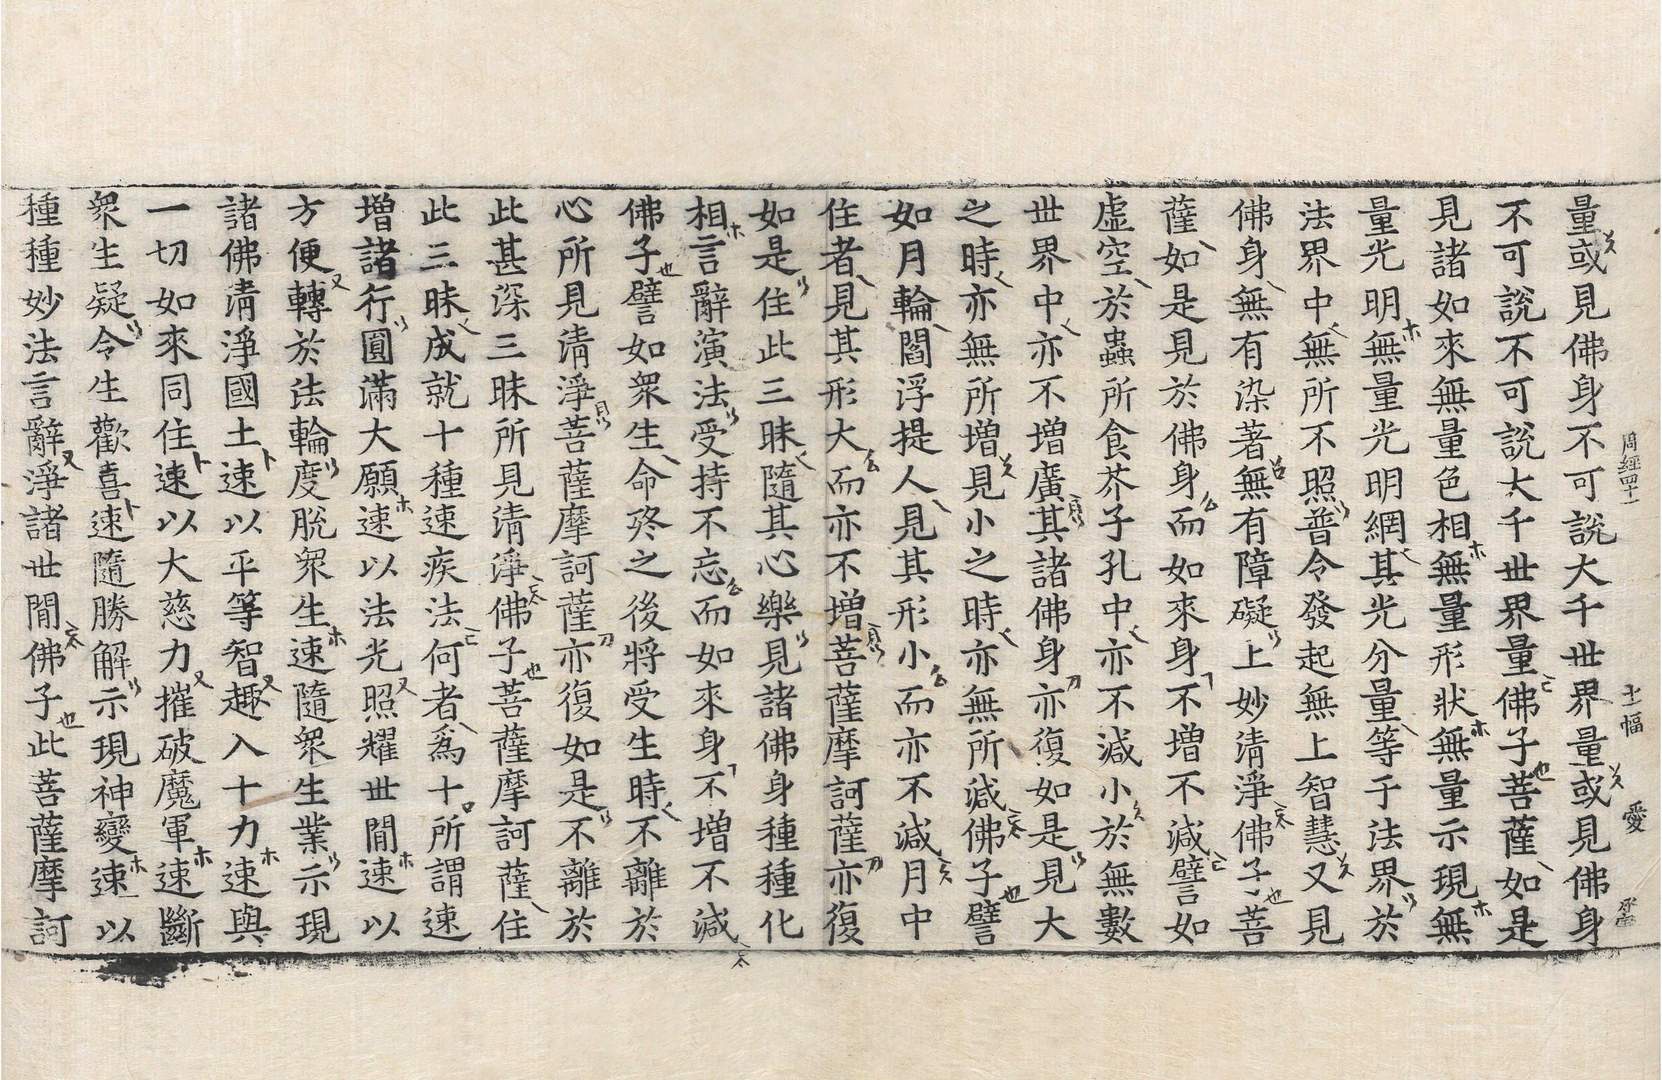 周經四十一　十二幅　愛
量或見佛身不可說大千世界量或見佛身
不可說不可說大千世界量佛子菩薩如是
見諸如來無量色相無量形狀無量示現無
量光明無量光明網其光分量等于法界於
法界中無所不照普令發起無上智慧又見
佛身無有染著無有障礙上妙清淨佛子菩
薩如是見於佛身而如來身不增不減譬如
虛空於蟲所食芥子孔中亦不減小於無數
世界中亦不增廣其諸佛身亦復如是見大
之時亦無所增見小之時亦無所減佛子譬
如月輪閻浮提人見其形小而亦不減月中
住者見其形大而亦不增菩薩摩訶薩亦復
如是住此三昧隨其心樂見諸佛身種種化
相言辭演法受持不忘而如來身不增不減
佛子譬如衆生命終之後將受生時不離於
心所見清淨菩薩摩訶薩亦復如是不離於
此甚深三昧所見清淨佛子菩薩摩訶薩住
此三昧成就十種速疾法何者爲十所謂速
增諸行圓滿大願速以法光照耀世間速以
方便轉於法輪度脫衆生速隨衆生業示現
諸佛清淨國土速以平等智趣入十力速與
一切如來同住速以大慈力摧破魔軍速斷
衆生疑令生歡喜速隨勝解示現神變速以
種種妙法言辭淨諸世間佛子此菩薩摩訶